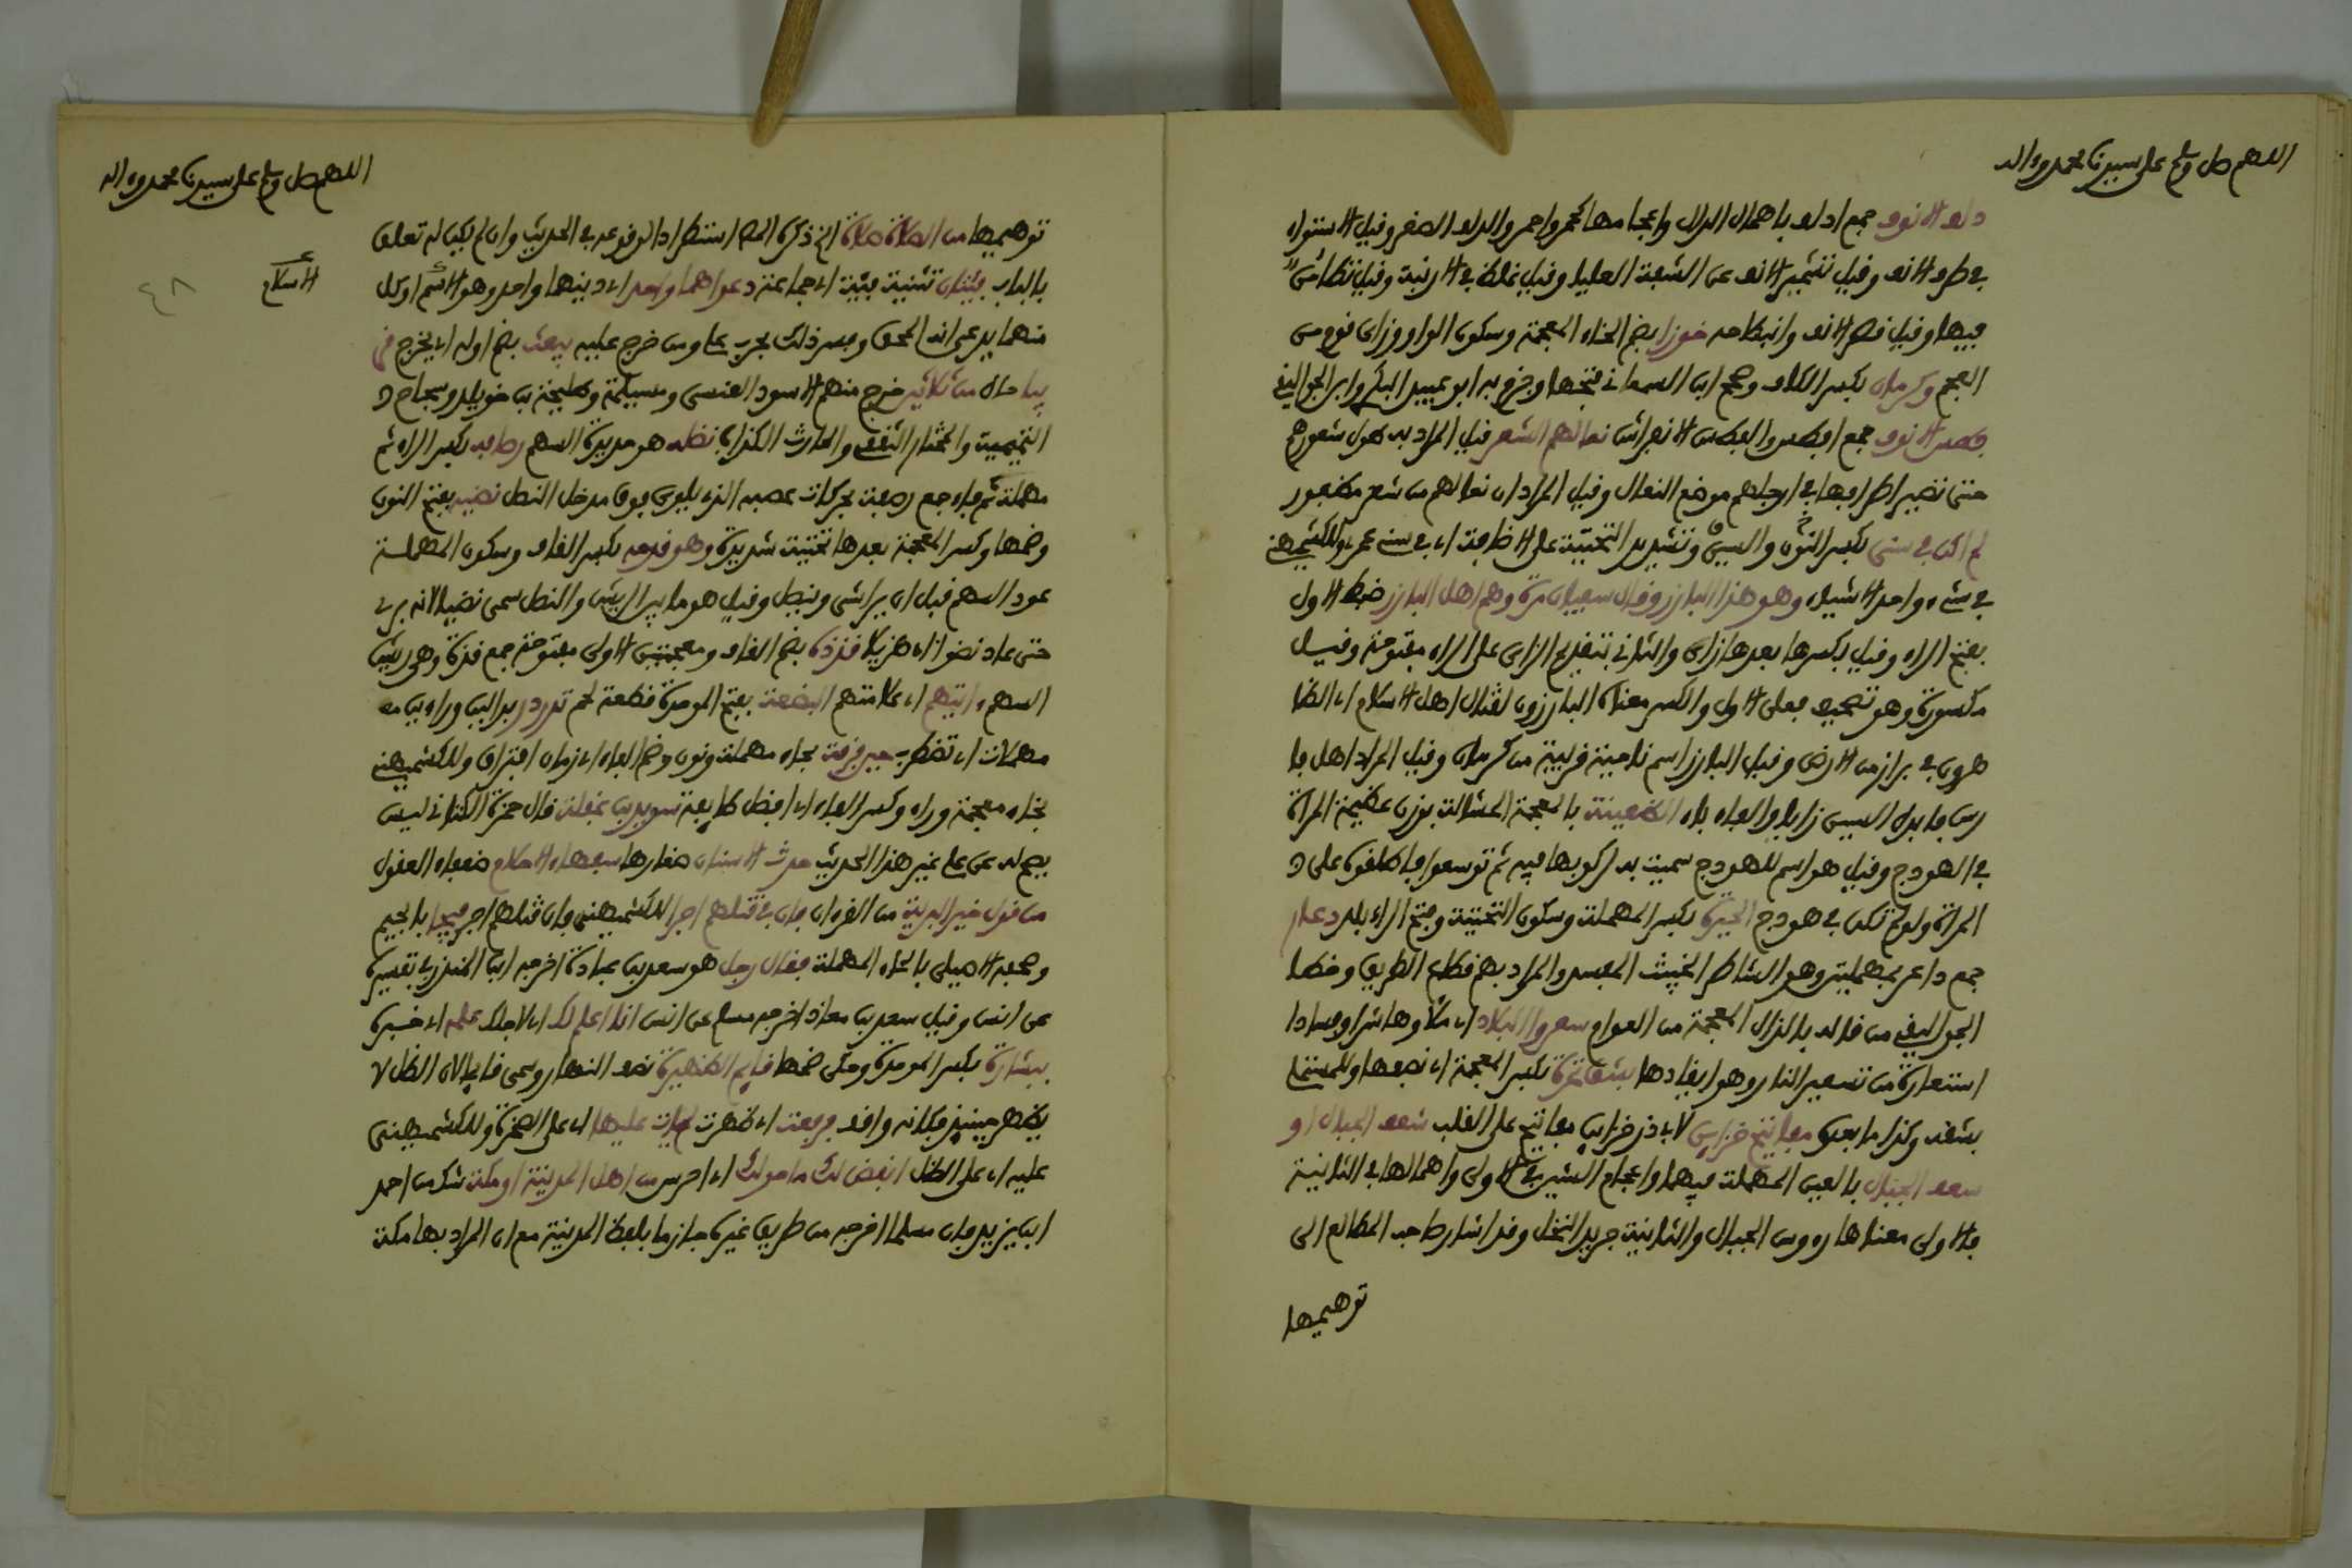 اللهم صل وسلم على سيدنا محمد وءاله
ذلف الانوف جمع اذلف باهمال الدال واعجامها كحمر واحمر والذلف الصغر وقيل الاستواء
في طرف الانف وقيل تشمير الانف عن الشفة العليا وقيل غلظ في الارنبة وقيل تطامن
فيها وقيل قصر الانف وانبطاحه خوزا بضم الخاء المعجمة وسكون الواو وزاي نوع من
العجم وكرمان بكسر الكاف وصحح ابن السمعاني فتحها وجزم به ابو عبيد البكري وابن الجواليقي
فطس الانوف جمع افطس والفطس الانفراش نعالهم الشعر قيل المراد به طول شعورهم
حتى تصير اطرافها في ارجلهم موضع النعال وقيل المراد ان نعالهم من شعر مضفور
لم اكن في سني بكسر النون والسين وتشديد التحتية على الاضافة اي في سني عمري وللكشميهني
في شيء واحد الاشياء وهو هذا البارز وقال سفيان مرة وهم اهل البارز ضبط الاول
بفتح الراء وقيل بكسرها بعدها زاي والثاني بتقديم الزاي على الراء مفتوحة وقيل
مكسورة وهو تصحيف فعلى الاول والكسر معناه البارزون لقتال اهل الاسلام اي الظا
هرون في براز من الارض وقيل البارز اسم ناحية قريبة من كرمان وقيل المراد اهل فا
رس فابدل السين زايا والفاء باء الظعينة بالمعجمة المشالة بوزن عظيمة المراة
في الهودج وقيل هو اسم للهودج سميت به لركوبها فيه ثم توسعوا فاطلقوه على
المراة ولو لم تكن في هودج الحيرة بكسر المهملة وسكون التحتية وفتح الراء بلد دعار
جمع داعر بمهملتين وهو الشاطر الخبيث المفسد والمراد بهم قطاع الطريق وخطا
الجواليقي من قاله بالذال المعجمة من العوام سعروا البلاد اي ملأوها شرا وفسادا
استعارة من تسعير النار وهو ايقادها بشق تمرة بكسر المعجمة اي نصفها وللمستملي
بشقة وكذا ما بعده مفاتيح خزاين لابي ذر خزاين مفاتيح على القلب شعف الجبال او
سعف الجبال بالعين المهملة فيهما واعجام الشين في الاولى واهمالها في الثانية
فالاولى معناها رءوس الجبال والثانية جريد النخل وقد اشار صاحب المطالع الى
توهيمها
اللهم صل وسلم على سيدنا محمد وءاله
توهيمها من الصلاة صلاة الخ ذكره المص استطرادا لوقوعه في الحديث وان لم يكن له تعلق
بالباب فئتان تثنية فئة اي جماعة دعواهما واحدا اي دينهما واحد وهو الاسلام او كل
الاسلام
٤٨
منهما يدعى انه المحق وفسر ذلك بحرب علي ومن خرج عليه يبعث بضم اوله اي يخرج قر
يبا حال من ثلاثين خرج منهم الاسود العنسي ومسيلمة وطليحة بن خويلد وسجاح
التميمية والمختار الثقفي والحارث الكذاب نصله هو حديدة السهم رصافه بكسر الراء ثم
مهملة ثم فاء جمع رصفة بحركات عصبه الذي يلوى فوق مدخل النصل نضيه بفتح النون
وضمها وكسر المعجمة بعدها تحتية شديدة وهو قدحه بكسر القاف وسكون المهملة
عود السهم قبل ان يراش وينصل وقيل هو ما بين الريش والنصل سمي نضيا لانه بري
حتى عاد نضوا اي هزيلا قذذه بضم القاف ومعجمتين الاولى مفتوحة جمع قذة وهي ريش
السهم ءايتهم اي علامتهم البضعة بفتح الموحدة قطعة لحم تدردر بدالين وراءين مه
مهملات اي تضطرب حين فرقة بحاء مهملة ونون وضم الفاء اي زمان افتراق وللكشميهني
بخاء معجمة وراء وكسر الفاء اي افضل طايفة سويد بن غفلة قال حمزة الكتاني ليس
يصح له عن علي غير هذا الحديث حدث الاسنان صغارها سفهاء الاحلام ضعفاء العقول
من قول خير البرية من القرءان فان في قتلهم اجرا للكشميهني فان قتلهم اجر فيجا بالجيم
وصحفه الاصيلي بالحاء المهملة فقال رجل هو سعد بن عبادة اخرجه ابن المنذر في تفسيره
عن انس وقيل سعد بن معاذ اخرجه مسلم عن انس انا اعلم لك اي لاجلك علمه اي خبره
ببشارة بكسر الموحدة وحكى ضمها قايم الظهيرة نصف النهار وسمي قايما لان الظل لا
يظهر حينيذ فكانه واقف فرفعت اي ظهرت لم يات عليها اي على الصخرة وللكشميهني
عليه اي على الظل انفض لك ما حولك اي احرس من اهل المدينة او مكة شك من احمد
ابن يزيد فان مسلما اخرجه من طريق غيره جازما بلفظ المدينة مع ان المراد بها مكة